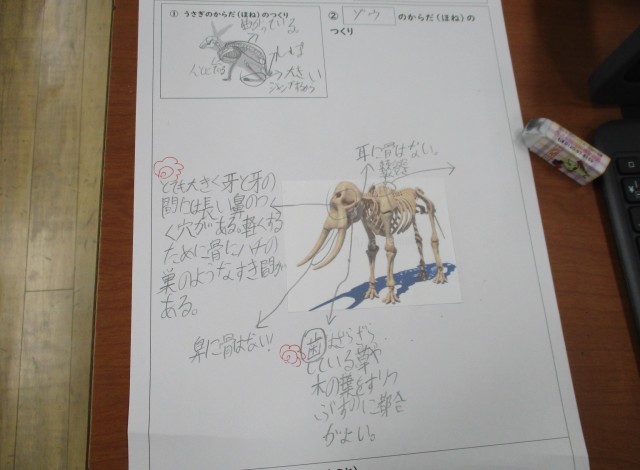 ① うさぎのからだ(ほね)のつくり
② ゾウ のからだ(ほね)の
つくり
大きい
耳に骨はない。
とても大きく牙と牙の
間には長い鼻のつ
く穴がある。軽くする
ために骨にハチの
巣のようなすき間が
ある。
鼻に骨はない!
歯はざらざら
している草や
木の葉をすりつ
ぶすのに都合
がよい。